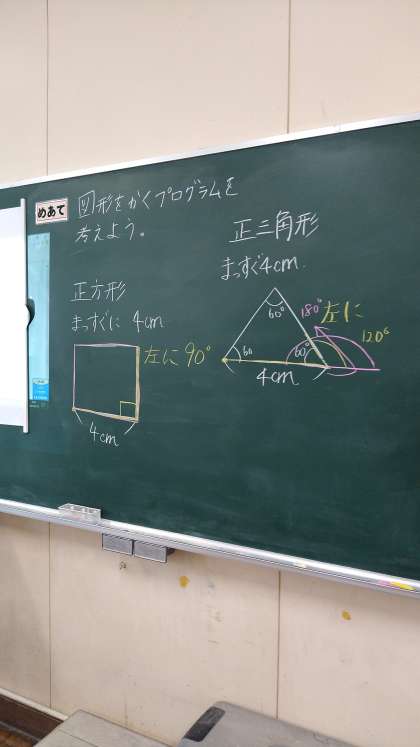 めあて
図形をかくプログラムを
考えよう。
正方形
まっすぐに 4cm
左に90°
4cm
正三角形
まっすぐ4cm
60°
180°
左に
120°
60
60°
4cm